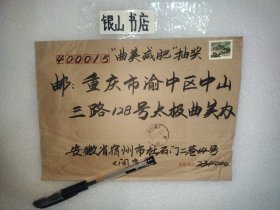 银山书店
400015
"曲美减肥"抽奖
邮：重庆市渝中区中山
三路128号太极曲美办
安徽省宿州市
二巷44号
234000